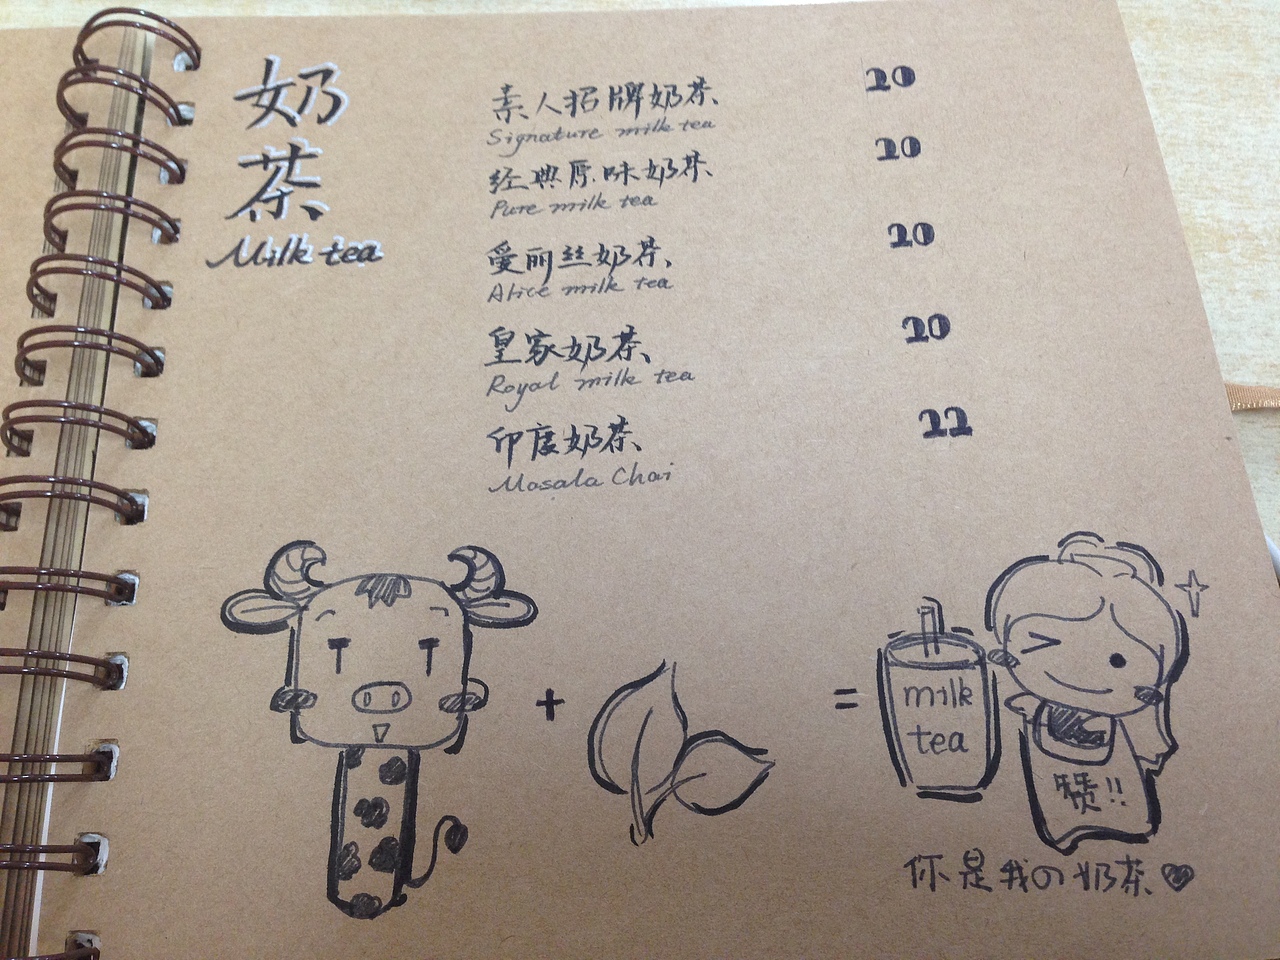 奶
茶
Milk tea
素人招牌奶茶 20
Signature milk tea
经典原味奶茶 20
Pure milk tea
爱丽丝奶茶 20
Alice milk tea
皇家奶茶 20
Royal milk tea
印度奶茶 22
Masala Chai
+
=
milk
tea
赞!!
你是我の奶茶